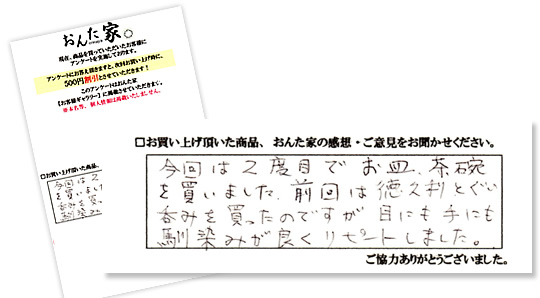 おんた家
現在、商品を買っていただいたお客様に
アンケートを実施しております。
アンケートにお答え頂きますと、次回お買い上げ時に、
500円割引とさせていただきます！
このアンケートはおんた家
【お客様ギャラリー】に掲載させていただきます。
□お買い上げ頂いた商品、
今回は2
を買いまし
呑みを買
馴染み
□お買い上げ頂いた商品、おんた家の感想・ご意見をお聞かせください。
今回は2度目でお皿、茶碗
を買いました、前回は徳久利とぐい
呑みを買ったのですが目にも手にも
馴染みが良くリピートしました。
ご協力ありがとうございました。